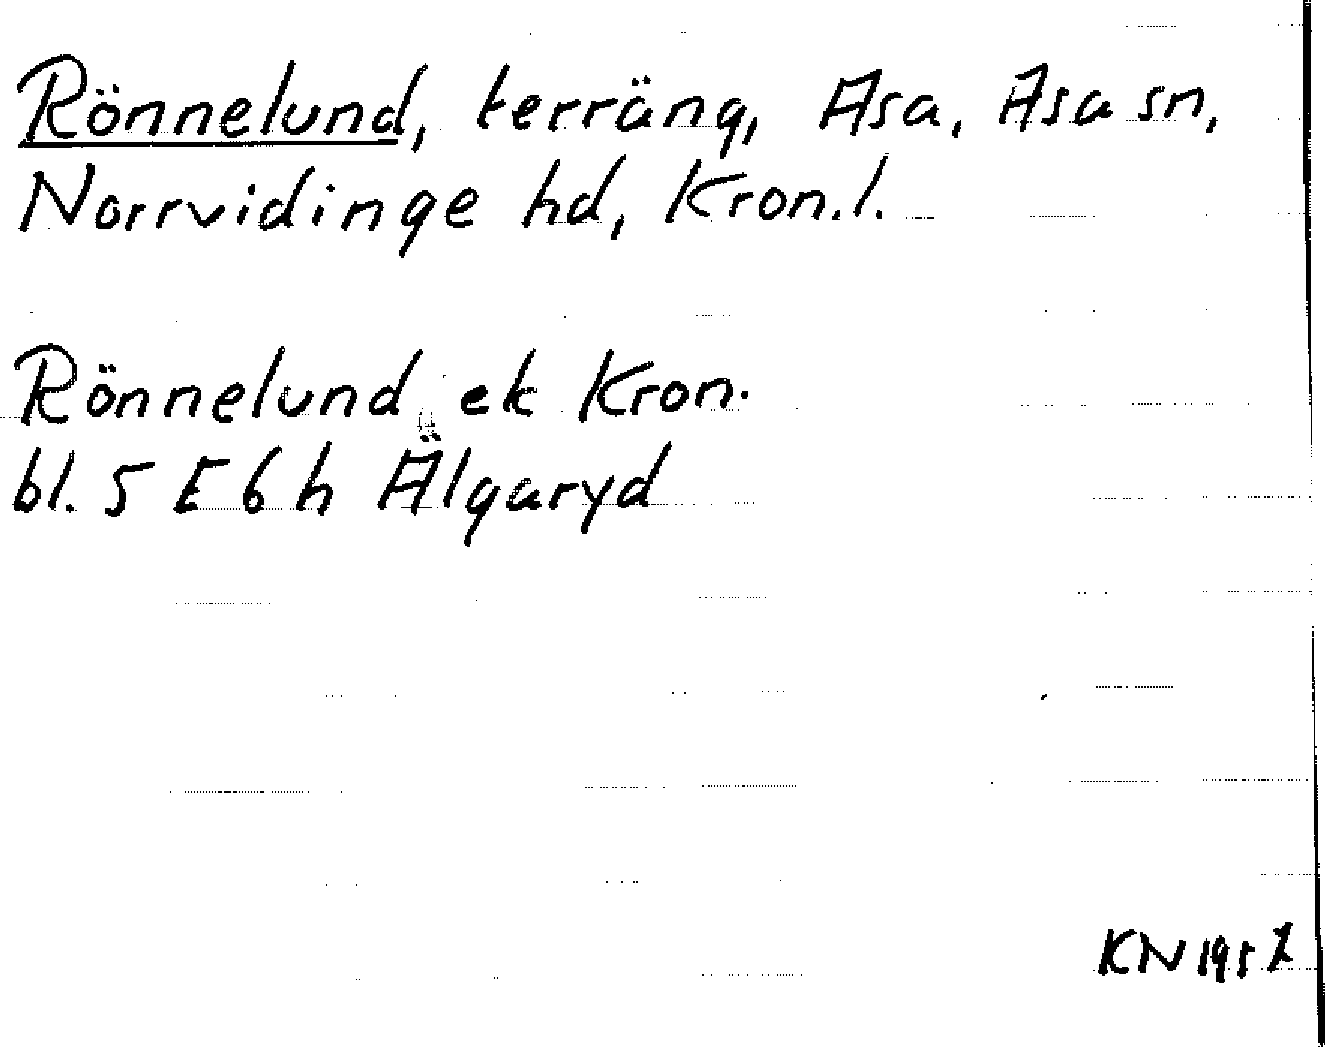 Rönnelund, terräng, Asa, Asa sn,
Norrvidinge hd, Kron.l.
Rönnelund ek Kron.
bl. 5 E 6 h Älgaryd
KN